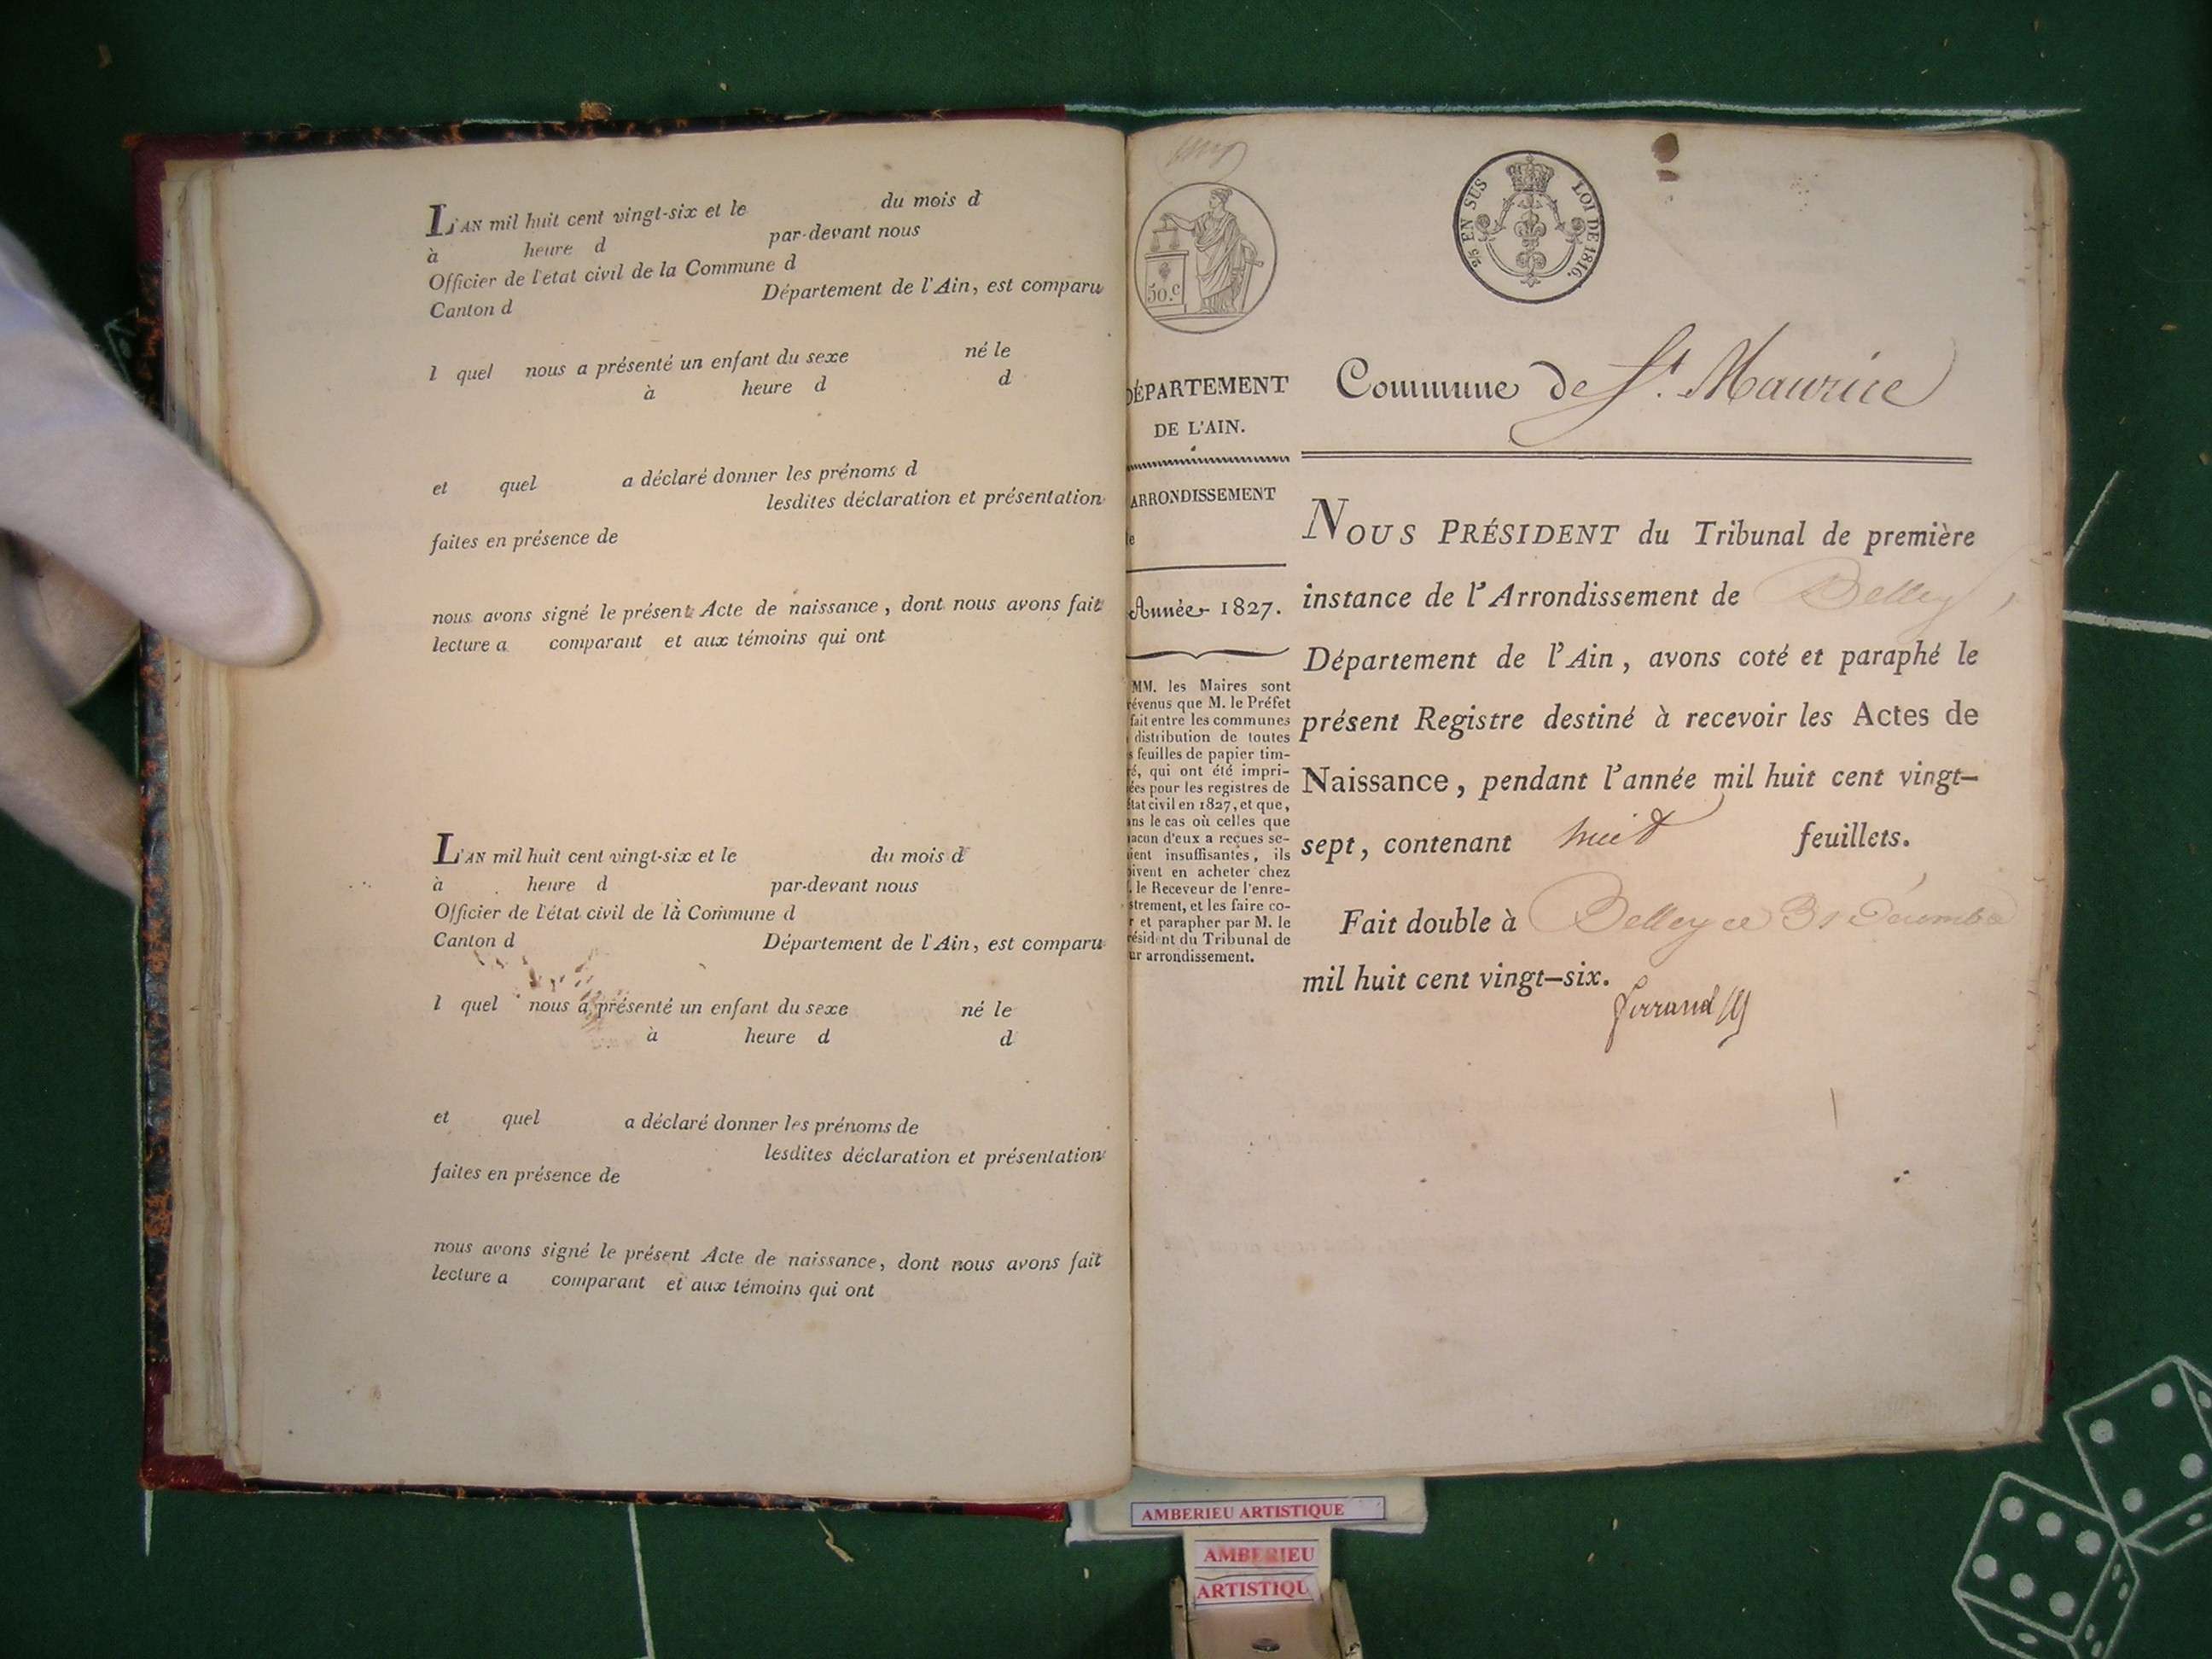 L'AN mil huit cent vingt-six et le du mois d
à heure d par-devant nous
Officier de l'etat civil de la Commune d
Canton d Département de l'Ain, est comparu
l quel nous a présenté un enfant du sexe né le
à heure d d
et quel a déclaré donner les prénoms d
lesdites déclaration et présentation
faites en présence de
nous avons signé le présent Acte de naissance, dont nous avons fait
lecture a comparant et aux témoins qui ont
L'AN mil huit cent vingt-six et le du mois d
à heure d par-devant nous
Officier de l'état civil de la Commune d
Canton d Département de l'Ain, est comparu
l quel nous a présenté un enfant du sexe né le
à heure d d
et quel a déclaré donner les prénoms de
lesdites déclaration et présentation
faites en présence de
nous avons signé le présent Acte de naissance, dont nous avons fait
lecture a comparant et aux témoins qui ont
50.c
25 EN SUS LOI DE 1816.
DÉPARTEMENT
DE L'AIN.
ARRONDISSEMENT
de
Année 1827.
MM. les Maires sont
révenus que M. le Préfet
fait entre les communes
distribution de toutes
s feuilles de papier tim-
ré, qui ont été impri-
ées pour les registres de
état civil en 1827, et que,
ans le cas où celles que
acun d'eux a reçues se-
ient insuffisantes, ils
oivent en acheter chez
. le Receveur de l'enre-
strement, et les faire co-
r et parapher par M. le
résident du Tribunal de
ur arrondissement.
Commune de St. Maurice
NOUS PRÉSIDENT du Tribunal de première
instance de l'Arrondissement de Belley,
Département de l'Ain, avons coté et paraphé le
présent Registre destiné à recevoir les Actes de
Naissance, pendant l'année mil huit cent vingt-
sept, contenant huit feuillets.
Fait double à Belley ce 31 Décembre
mil huit cent vingt-six.
Ferrand
AMBERIEU ARTISTIQUE
AMBERIEU
ARTISTIQU